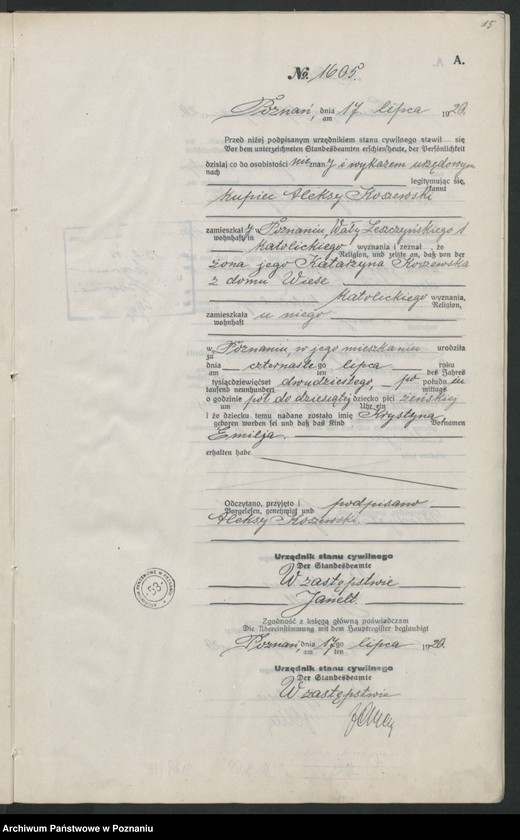 15
A.
No. 1605.
Poznań, dnia 17 lipca 1920.
am
Przed niżej podpisanym urzędnikiem stanu cywilnego stawił się
Vor dem unterzeichneten Standesbeamten erschien heute, der Persönlichkeit
dzisiaj co do osobistości nieznany i wykazem urzędowym
nach
legitymując się,
kannt
kupiec Aleksy Koszewski
zamieszkały w Poznaniu Wały Leszczyńskiego 1
wohnhaft in
katolickiego wyznania i zeznał, że
Religion, und zeigte an, daß von der
żona jego Katarzyna Koszewska
z domu Wiese
katolickiego wyznania,
Religion,
zamieszkała u niego
wohnhaft
w Poznaniu, w jego mieszkaniu urodziła
zu
dnia czternastego lipca roku
am ten des Jahres
tysiącdziewięćset dwudziestego, po południu
tausend neunhundert mittags
o godzinie pół do dziesiątej dziecko płci żeńskiej
um Uhr ein
i że dziecku temu nadane zostało imię Krystyna
geboren worden sei und daß das Kind Vornamen
Emilja.
erhalten habe
Odczytano, przyjęto i podpisano
Vorgelesen, genehmigt und
Aleksy Koszewski.
Urzędnik stanu cywilnego
Der Standesbeamte
W zastępstwie
Janelt.
Zgodność z księgą główną poświadczam
Die Übereinstimmung mit dem Hauptregister beglaubigt
Poznań, dnia 17go lipca 1920.
am ten
Urzędnik stanu cywilnego
Der Standesbeamte
W zastępstwie
53
Archiwum Państwowe w Poznaniu